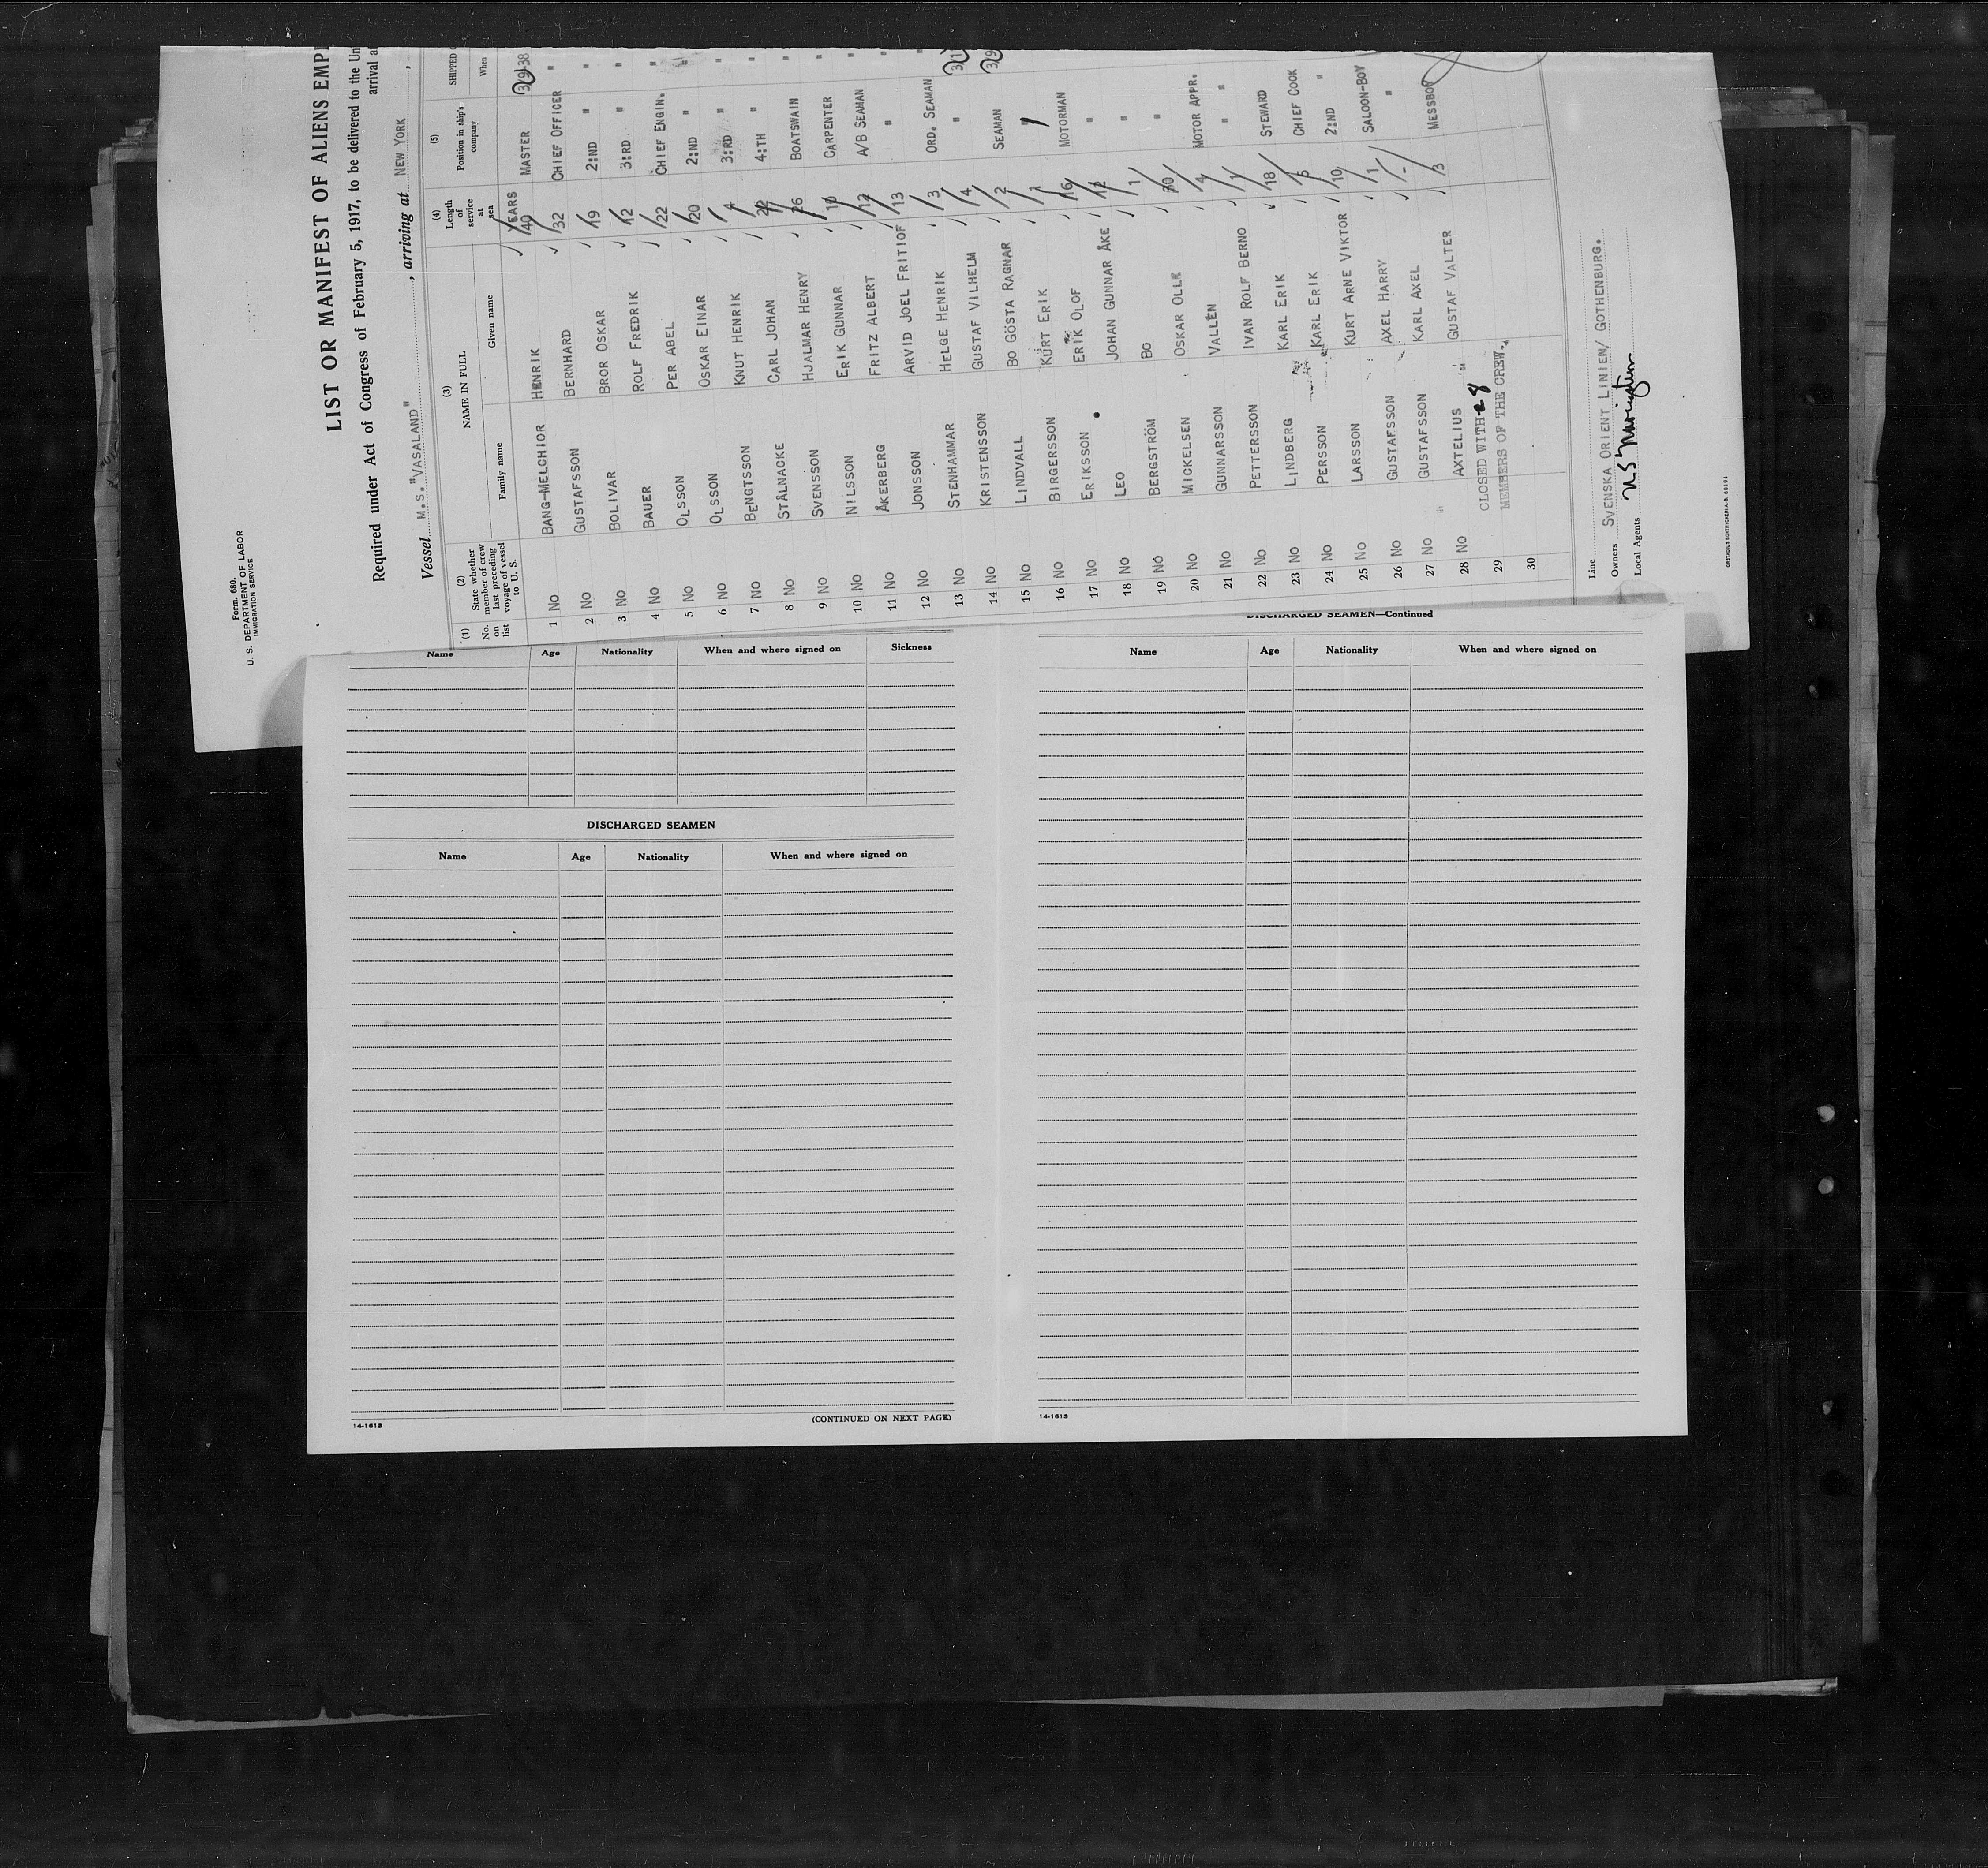 Form. 680.
U. S. DEPARTMENT OF LABOR
IMMIGRATION SERVICE
LIST OR MANIFEST OF ALIENS EMPL
Required under Act of Congress of February 5, 1917, to be delivered to the Un
arrival a
Vessel M.S. "VASALAND" , arriving at NEW YORK ,
(1) No. on list (2) State whether member of crew last preceding voyage of vessel to U. S. (3) NAME IN FULL Family name Given name (4) Length of service at sea (5) Position in ship's company SHIPPED When
YEARS
1 NO BANG-MELCHIOR HENRIK 40 MASTER 3/9-38
2 NO GUSTAFSSON BERNHARD 32 CHIEF OFFICER "
3 NO BOLIVAR BROR OSKAR 19 2:ND " "
4 NO BAUER ROLF FREDRIK 12 3:RD " "
5 NO OLSSON PER ABEL 22 CHIEF ENGIN. "
6 NO OLSSON OSKAR EINAR 20 2:ND " "
7 NO BENGTSSON KNUT HENRIK 3:RD " "
8 NO STÅLNACKE CARL JOHAN 22 4:TH " "
9 NO SVENSSON HJALMAR HENRY 26 BOATSWAIN "
10 NO NILSSON ERIK GUNNAR 10 CARPENTER "
11 NO ÅKERBERG FRITZ ALBERT 12 A/B SEAMAN "
12 NO JONSSON ARVID JOEL FRITIOF 13 " "
13 NO STENHAMMAR HELGE HENRIK 3 ORD. SEAMAN "
14 NO KRISTENSSON GUSTAF VILHELM 4 "
15 NO LINDVALL BO GÖSTA RAGNAR 2 SEAMAN
16 NO BIRGERSSON KURT ERIK 1 "
17 NO ERIKSSON ERIK OLOF 16 MOTORMAN
18 NO LEO JOHAN GUNNAR ÅKE 12 "
19 NO BERGSTRÖM BO 1 "
20 NO MICKELSEN OSKAR OLLE 30 "
21 NO GUNNARSSON VALLÉN 4 MOTOR APPR.
22 NO PETTERSSON IVAN ROLF BERNO 1 " "
23 NO LINDBERG KARL ERIK 18 STEWARD
24 NO PERSSON KARL ERIK 5 CHIEF COOK
25 NO LARSSON KURT ARNE VIKTOR 10 2:ND "
26 NO GUSTAFSSON AXEL HARRY 1 SALOON-BOY
27 NO GUSTAFSSON KARL AXEL - "
28 NO AXTELIUS GUSTAF VALTER 3 MESSBOY
29 CLOSED WITH 28
30 MEMBERS OF THE CREW.
Line
Owners SVENSKA ORIENT LINIEN/ GOTHENBURG.
Local Agents
Name Age Nationality When and where signed on Sickness
DISCHARGED SEAMEN
Name Age Nationality When and where signed on
14-1613 (CONTINUED ON NEXT PAGE)
DISCHARGED SEAMEN—Continued
Name Age Nationality When and where signed on
14-1613